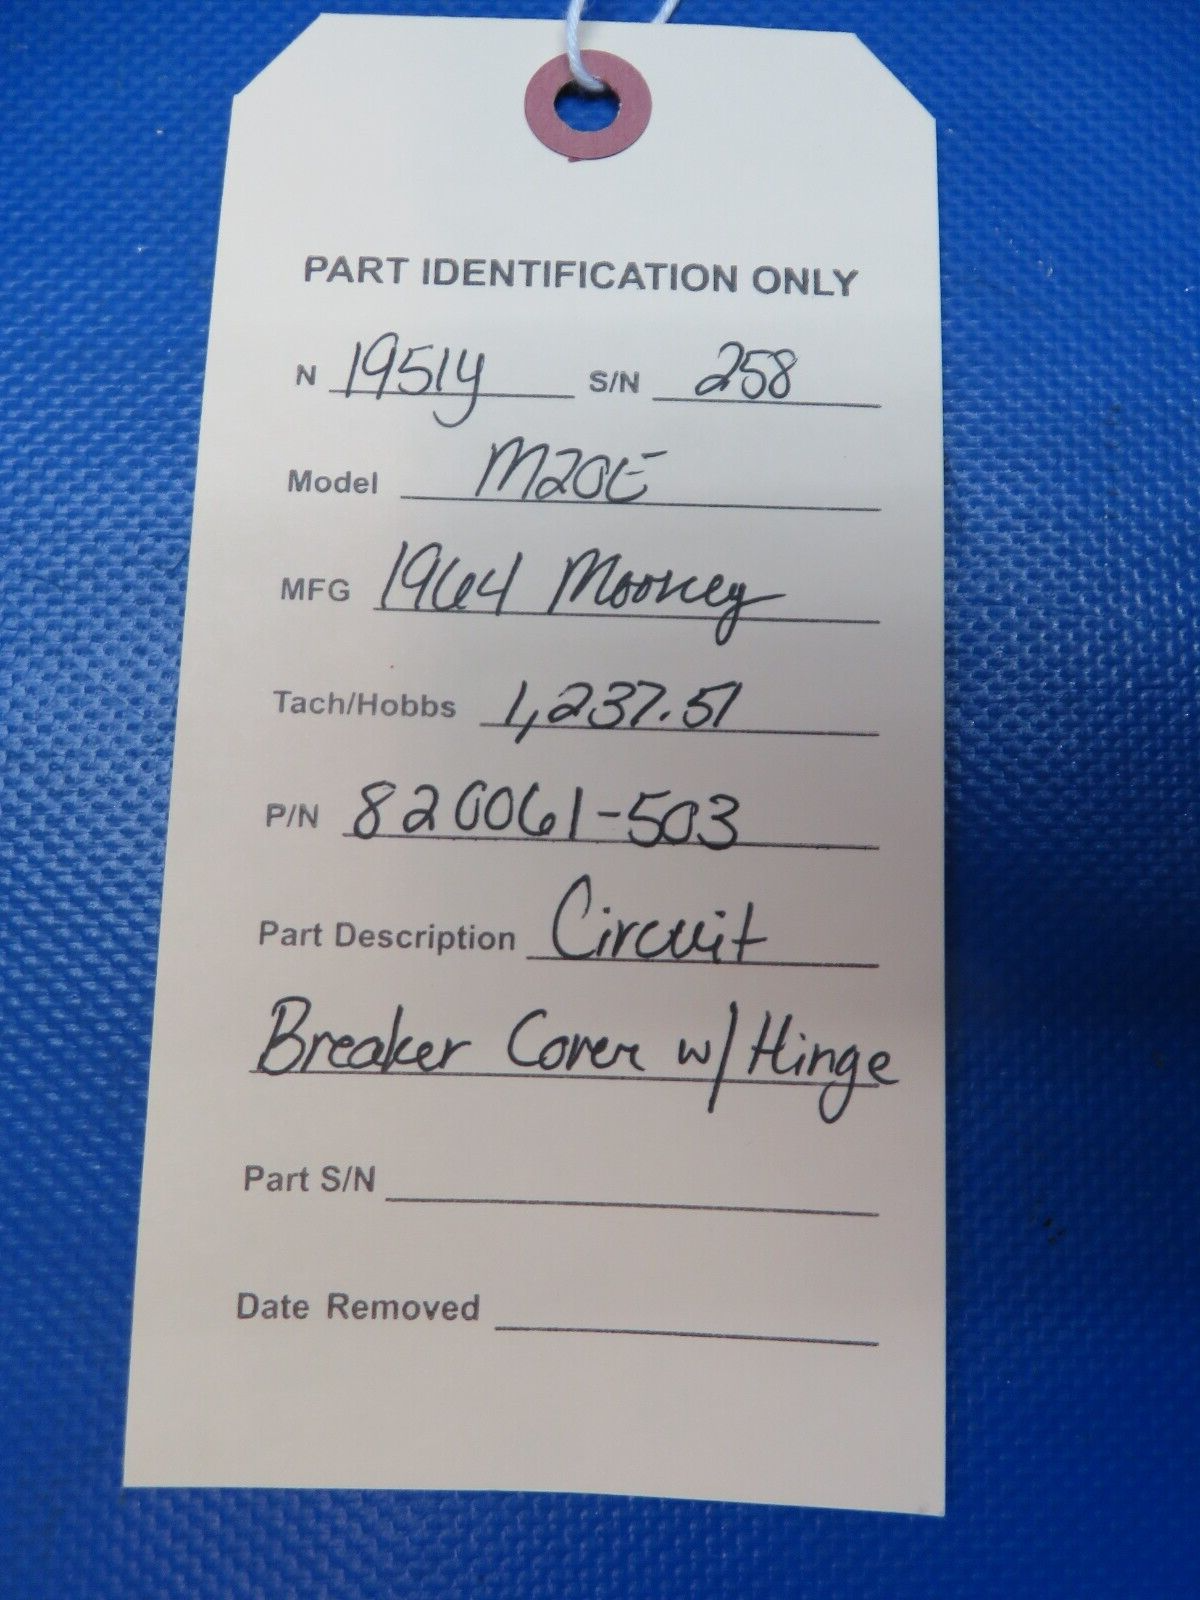 PART IDENTIFICATION ONLY
N 1951Y S/N 258
Model M20E
MFG 1964 Mooney
Tach/Hobbs 1,237.51
P/N 820061-503
Part Description Circuit
Breaker Cover w/ Hinge
Part S/N
Date Removed